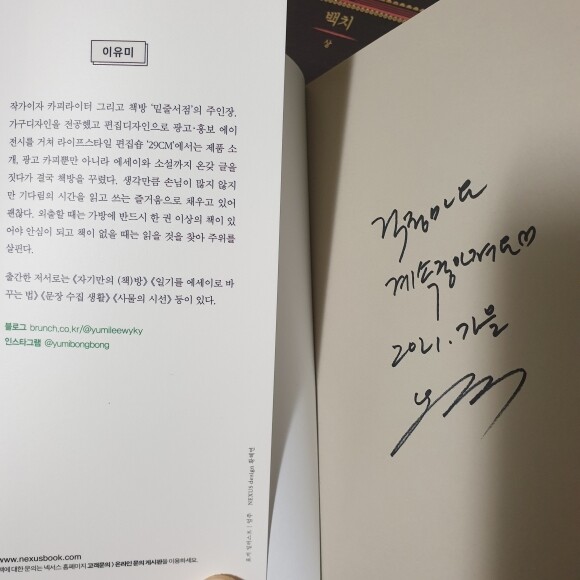 백치
상
이유미
작가이자 카피라이터 그리고 책방 '밑줄서점'의 주인장.
가구디자인을 전공했고 편집디자인으로 광고·홍보 에이
전시를 거쳐 라이프스타일 편집숍 '29CM'에서는 제품 소
개, 광고 카피뿐만 아니라 에세이와 소설까지 온갖 글을
짓다가 결국 책방을 꾸렸다. 생각만큼 손님이 많지 않지
만 기다림의 시간을 읽고 쓰는 즐거움으로 채우고 있어
괜찮다. 외출할 때는 가방에 반드시 한 권 이상의 책이 있
어야 안심이 되고 책이 없을 때는 읽을 것을 찾아 주위를
살핀다.
출간한 저서로는 《자기만의 (책)방》 《일기를 에세이로 바
꾸는 법》 《문장 수집 생활》 《사물의 시선》 등이 있다.
블로그 brunch.co.kr/@yumileewyky
인스타그램 @yumibongbong
NEXUS design
www.nexusbook.com
책에 대한 문의는 넥서스 홈페이지 고객문의 > 온라인 문의 게시판을 이용하세요.
걱정마요
2021. 가을